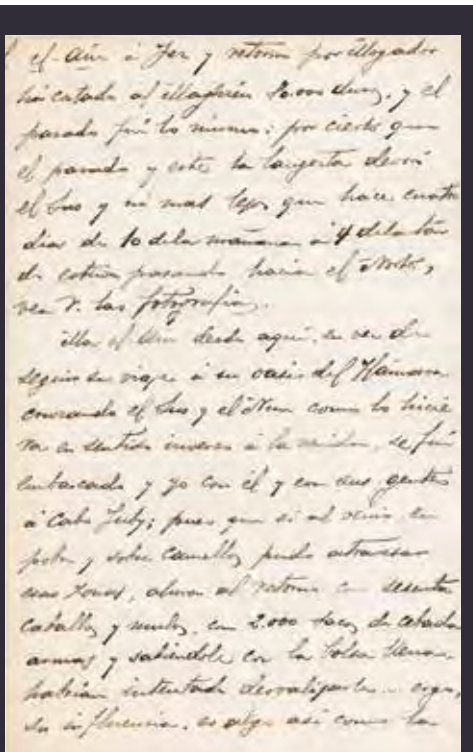 el Ain á Fez y retorno por Mogador
há catado al Maghzen 80.000 duros, y el
pasado fué lo mismo; por cierto que
el pasado y este la langosta devoró
el Sus y no mas lejos que hace cuatro
dias de 10 de la mañana á 4 de la tar
de estuvo pasando hacia el Norte,
vea V. las fotografias.
Ma el Ain desde aqui, en vez de
seguir su viaje á su oasis del Hámara
cruzando el Sus y el Nun como lo hicie
ra en sentido inverso á la venida, se fué
embarcado y yo con él y con sus gentes
á Cabo Juby; pues que si al venir, en
pobre y sobre camellos pudo atravesar
esas zonas, ahora al retorno con sesenta
caballos y mulos, con 2.000 sacos de cebada
armas y sabiéndole con la bolsa llena,
habrian intentado desvalijarle... ergo,
su influencia, es algo asi como la